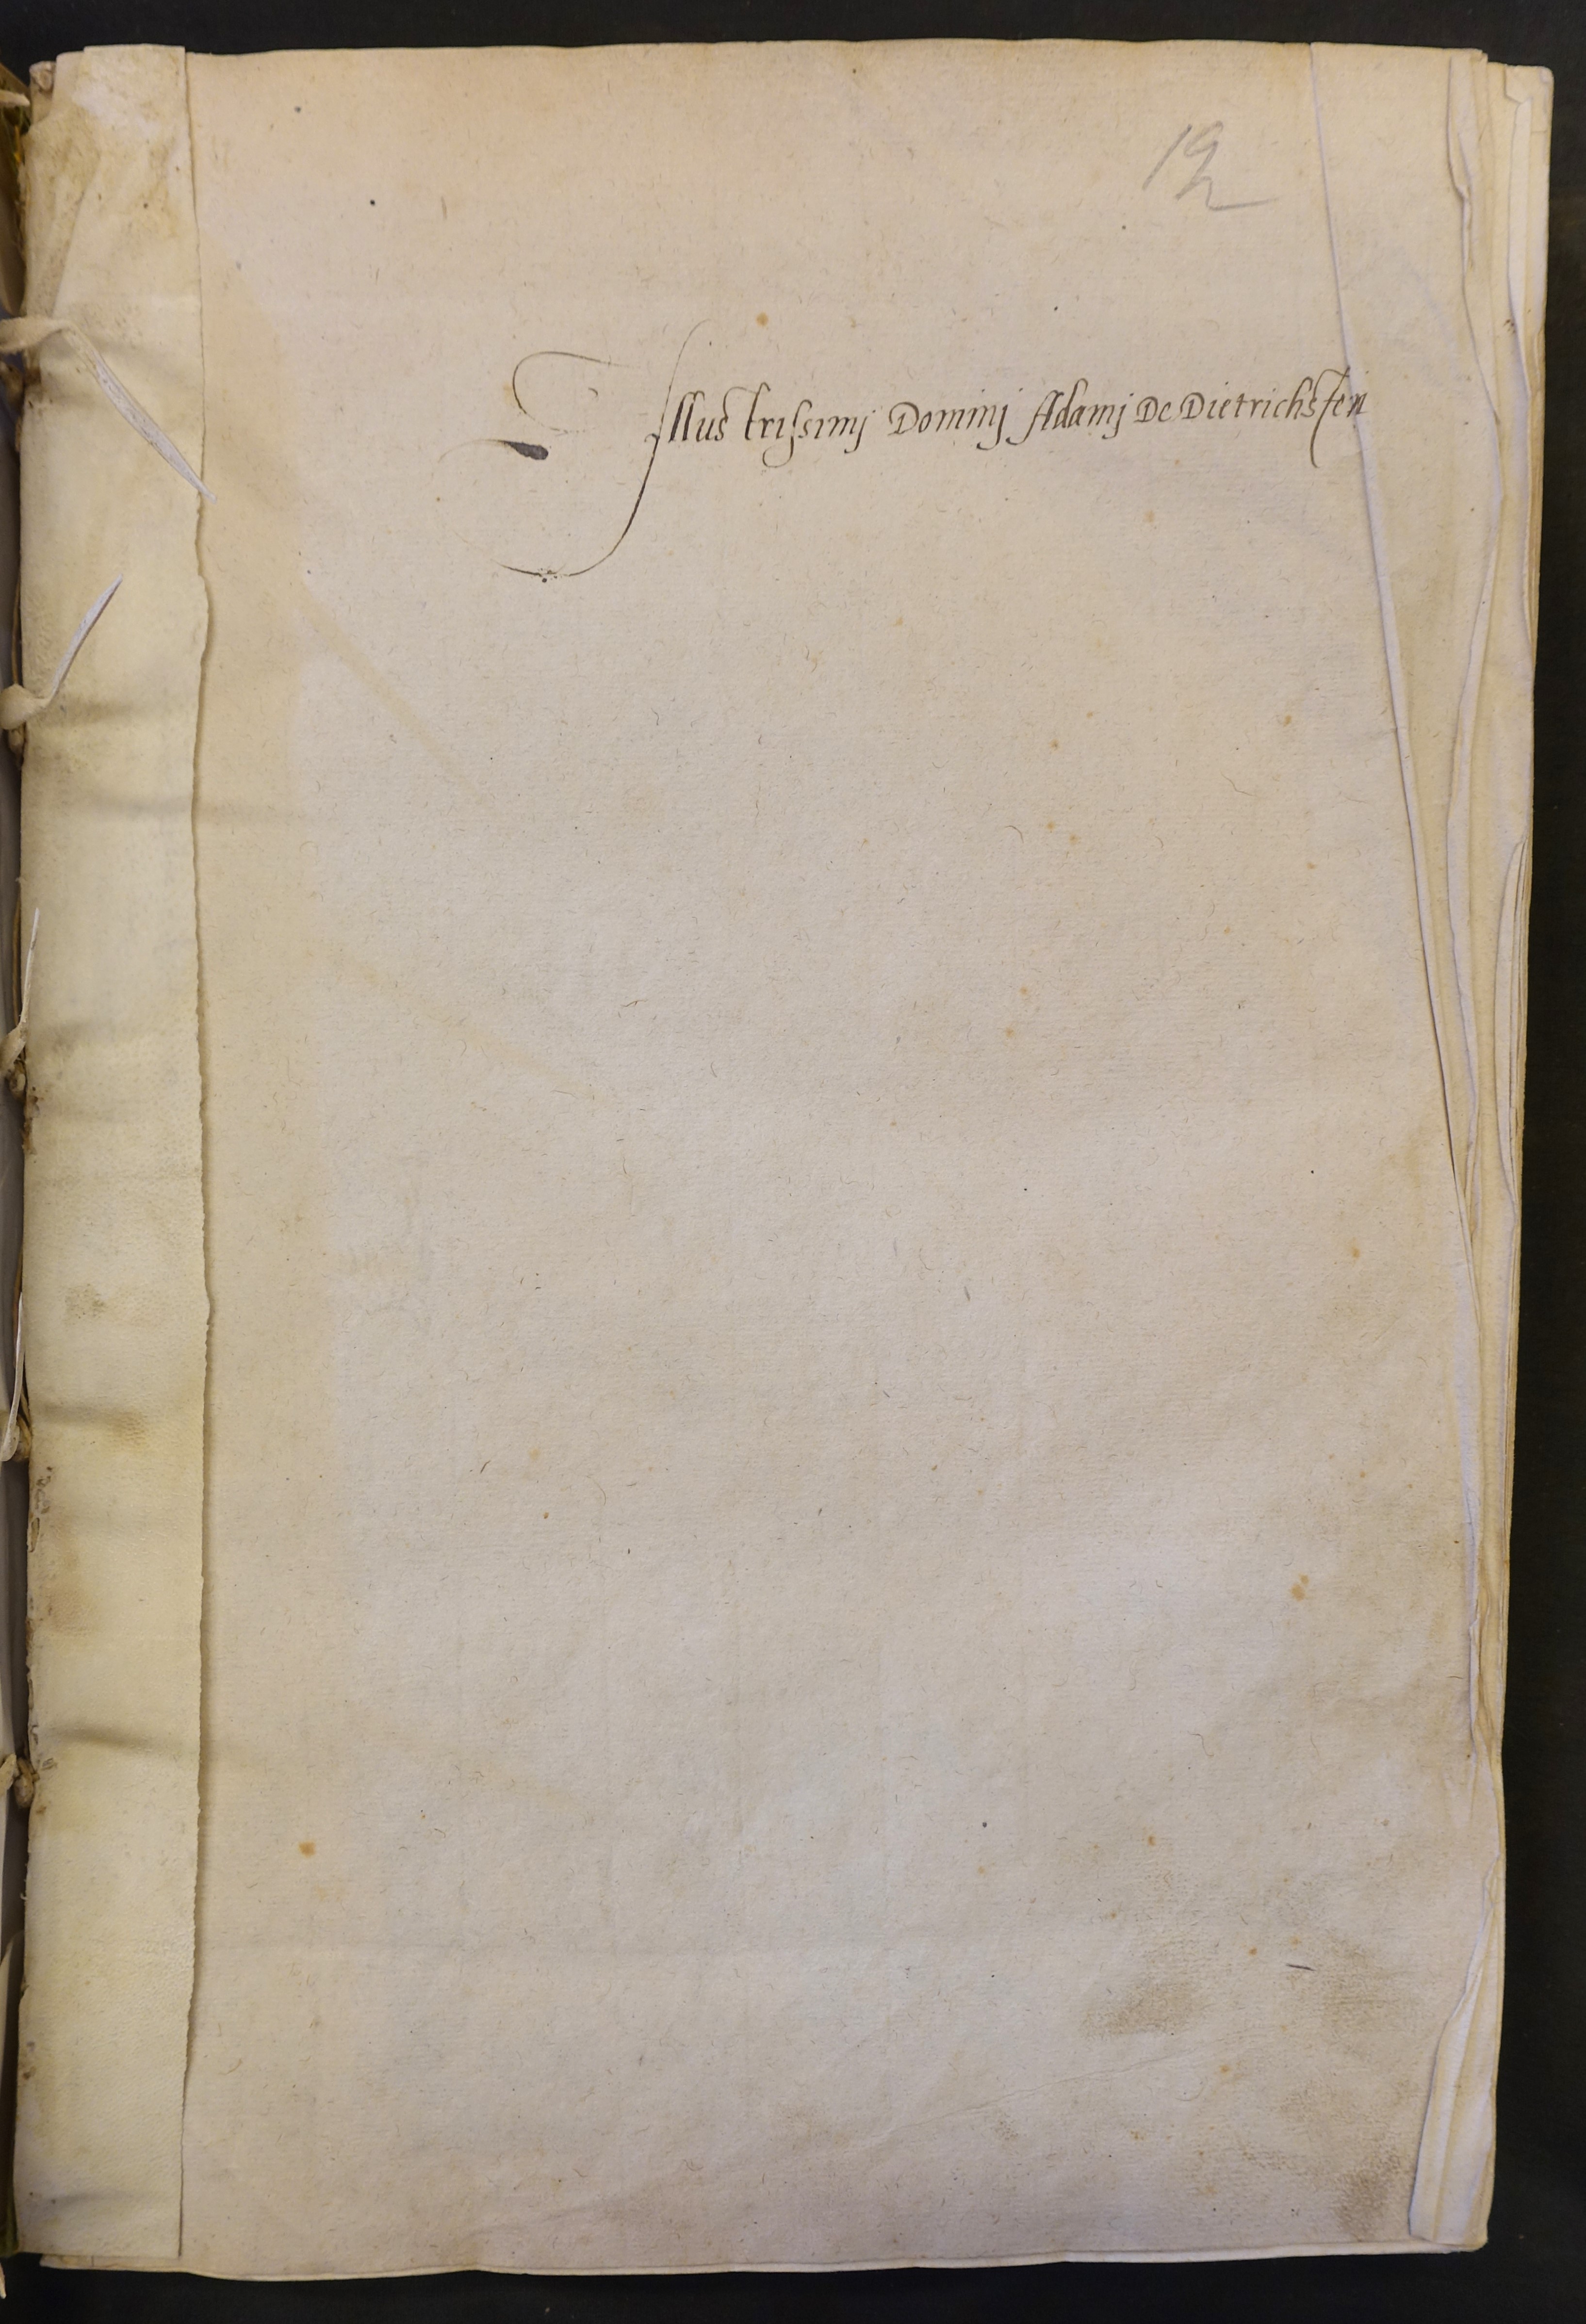 Illustrissimj Dominj Adamj De Dietrichsten